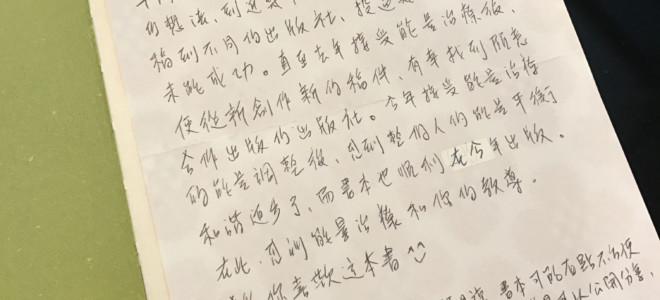 的想法,到迷
稿到不同的出版社、投遞
未能成功。直至去年接受能量治療後,
便從新創作新的稿件、有幸找到願意
合作出版的出版社。今年接受能量治療
的能量調整後、感到整個人的能量平衡
和諧進步了、而書本也順利在今年出版。
在此,感謝能量治療和你的教導。
你喜歡這本書
書本可能有點不方便
公開分享,